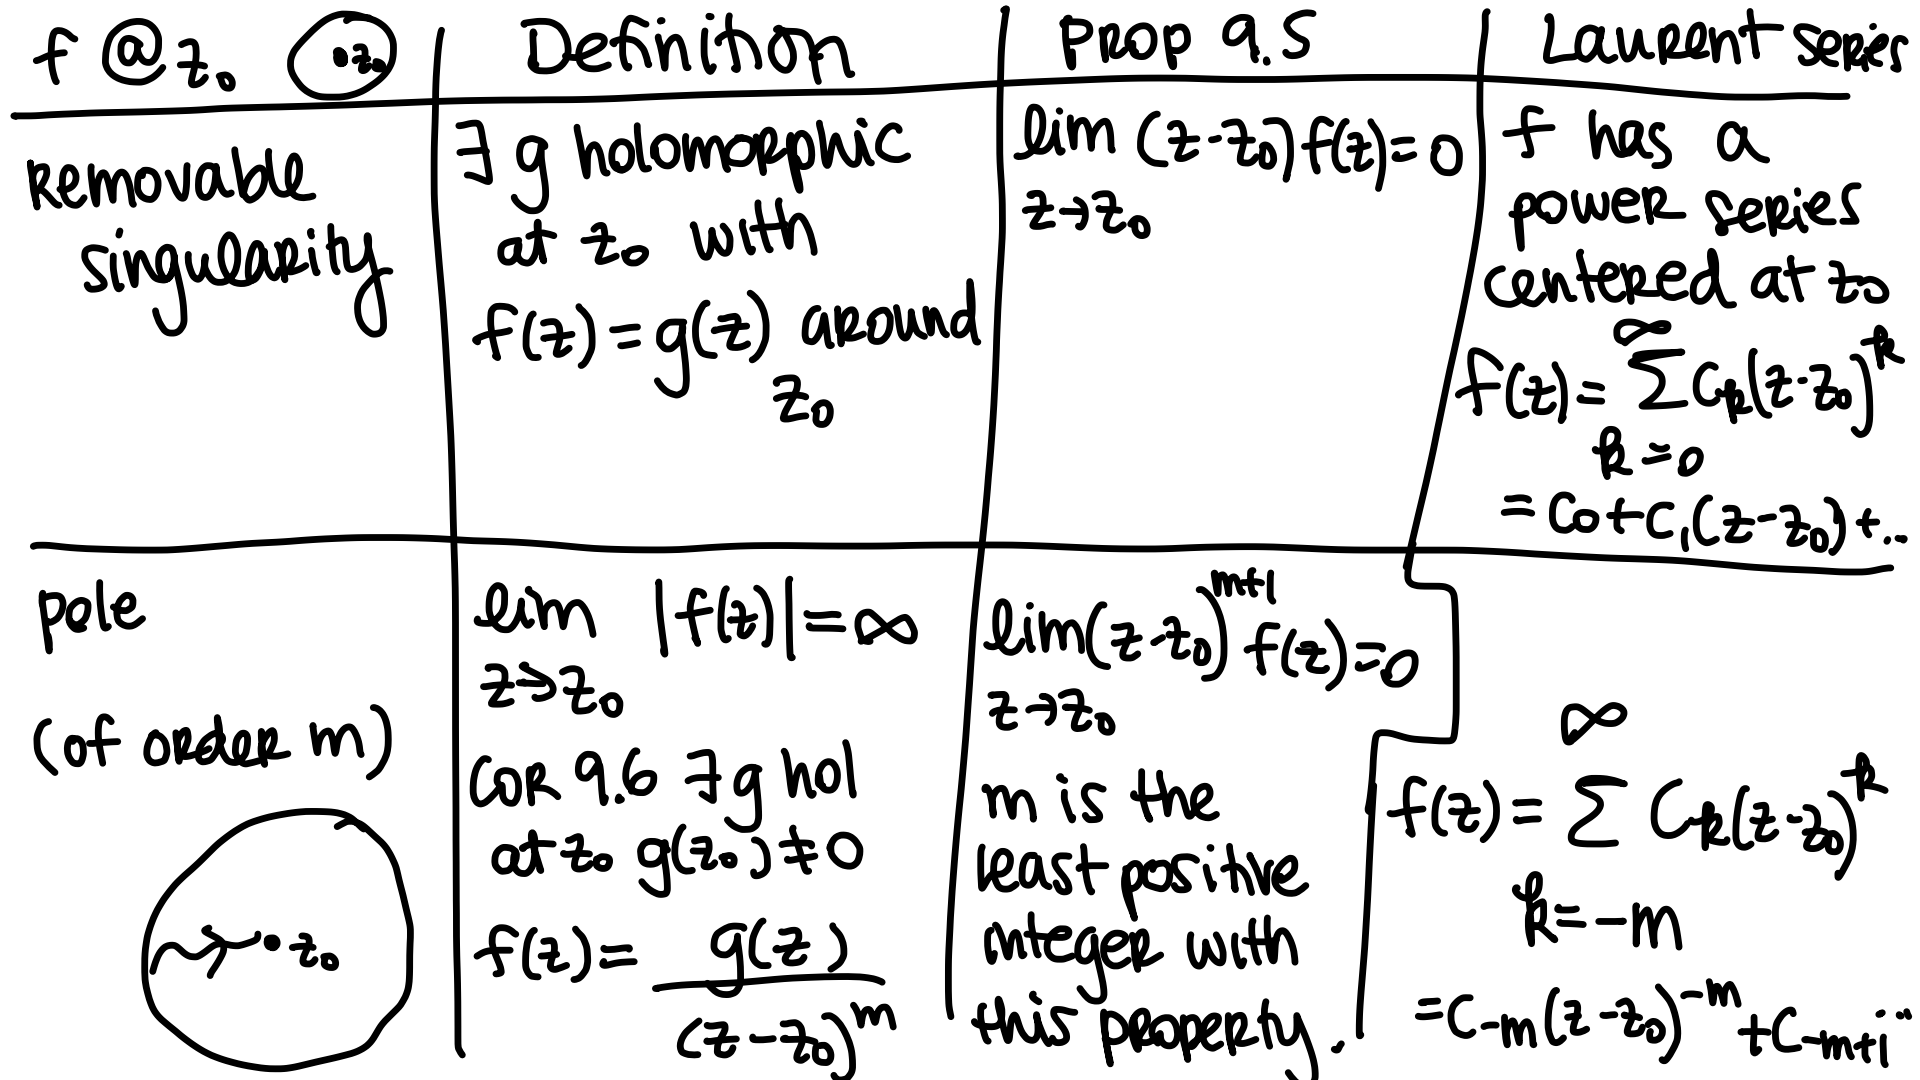 f @ z₀ • z₀ Definition Prop 9.5 Laurent series
Removable
singularity
∃ g holomorphic
at z₀ with
f(z) = g(z) around
z₀
lim (z-z₀) f(z) = 0
z→z₀
f has a
power series
centered at z₀
∞
f(z) = Σ Cₖ(z-z₀)ᵏ
k=0
= C₀ + C₁(z-z₀) + ...
pole
(of order m)
• z₀
lim |f(z)| = ∞
z→z₀
Cor 9.6 ∃ g hol
at z₀ g(z₀) ≠ 0
f(z) = g(z)
(z-z₀)ᵐ
lim (z-z₀)ᵐ⁺¹ f(z) = 0
z→z₀
m is the
least positive
integer with
this property.
∞
f(z) = Σ Cₖ(z-z₀)ᵏ
k=-m
= C₋ₘ(z-z₀)⁻ᵐ + C₋ₘ₊₁ ...